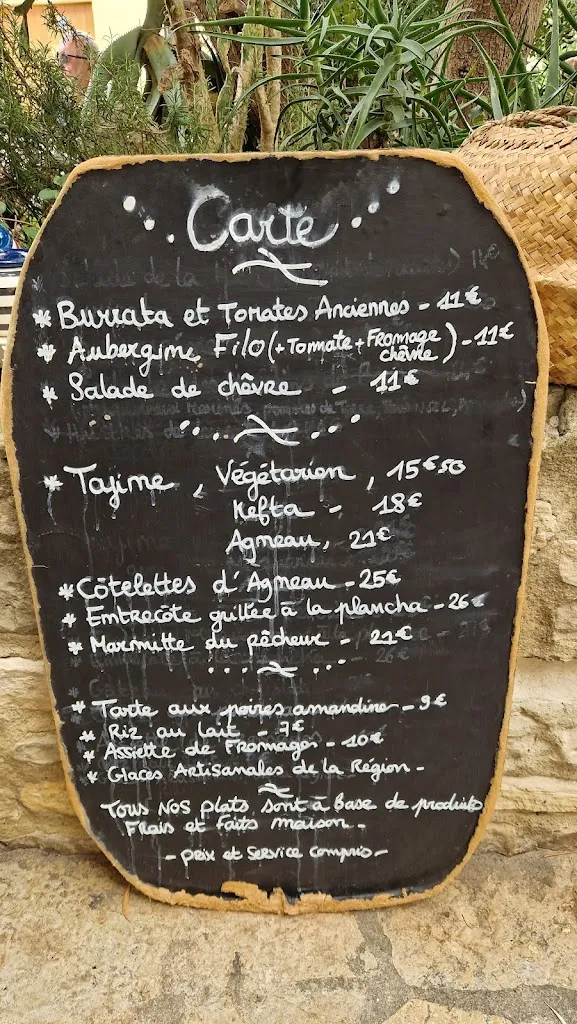 Carte
* Burrata et Tomates Anciennes - 11€
* Aubergine Filo (+Tomate + Fromage chèvre) - 11€
* Salade de chèvre - 11€
* Tajine, Végétarien, 15€50
Kefta - 18€
Agneau, 21€
* Côtelettes d'Agneau - 25€
* Entrecôte grillée à la plancha - 26€
* Marmitte du pêcheur - 21€
* Tarte aux poires amandine - 9€
* Riz au lait - 7€
* Assiette de Fromages - 10€
* Glaces Artisanales de la Région -
Tous nos plats sont à Base de produits
Frais et Faits maison -
- prix et service compris -